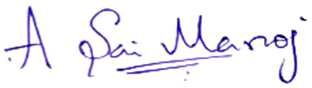 A Sai Manoj